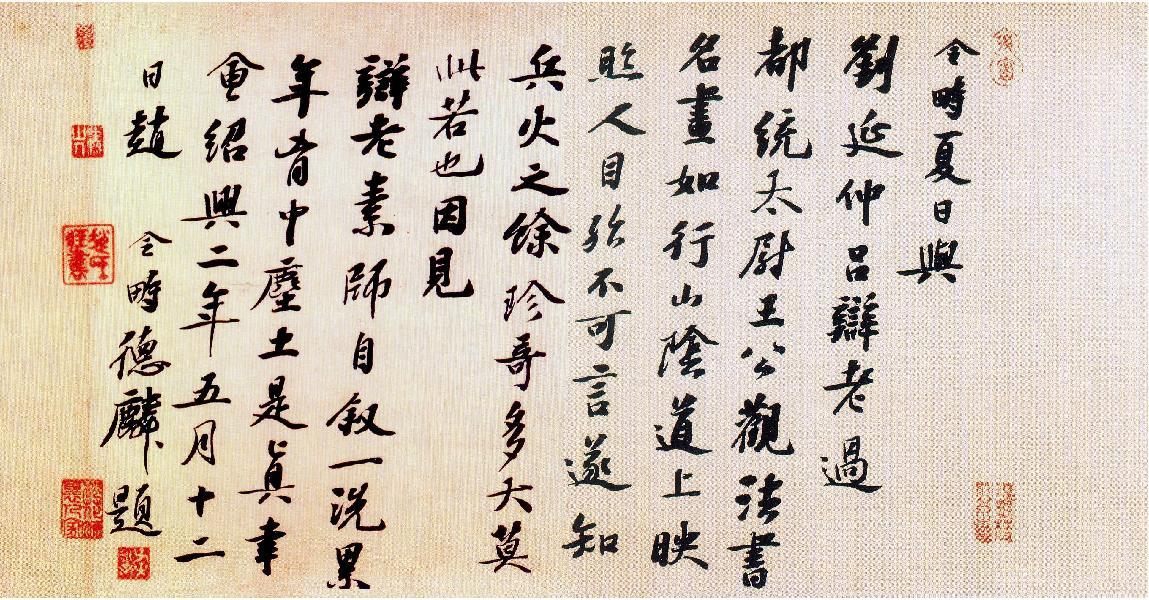 令畤夏日與
劉延仲呂辯老過
都統太尉王公觀法書
名畫如行山陰道上映
照人目殆不可言遂知
兵火之餘珍奇多大莫
此若也因見
辯老素師自叙一洗累
年胷中塵土是真幸
會紹興二年五月十二
日趙令畤德麟題